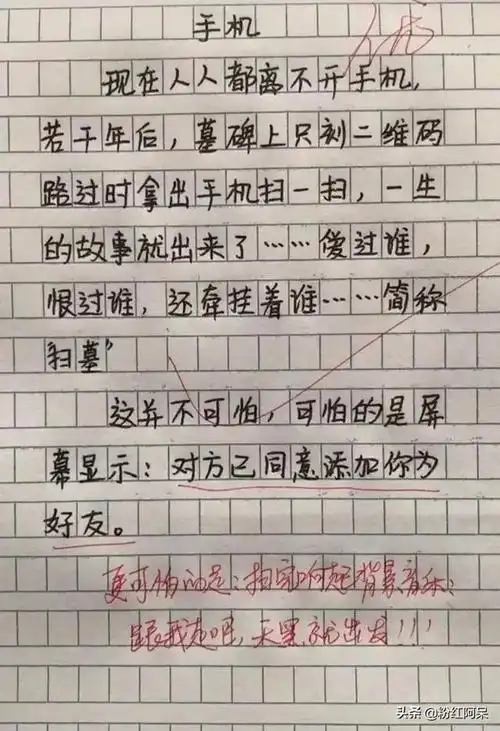 手机
现在人人都离不开手机,
若干年后，墓碑上只刻二维码
路过时拿出手机扫一扫，一生
的故事就出来了……爱过谁，
恨过谁，还牵挂着谟……简称
“扫墓”
这并不可怕，可怕的是屏
幕显示：对方已同意添加你为
好友。
更可怕的是：扫完响起背景音乐：
跟我走吧，天黑就出发!!!
头条 @粉红阿呆